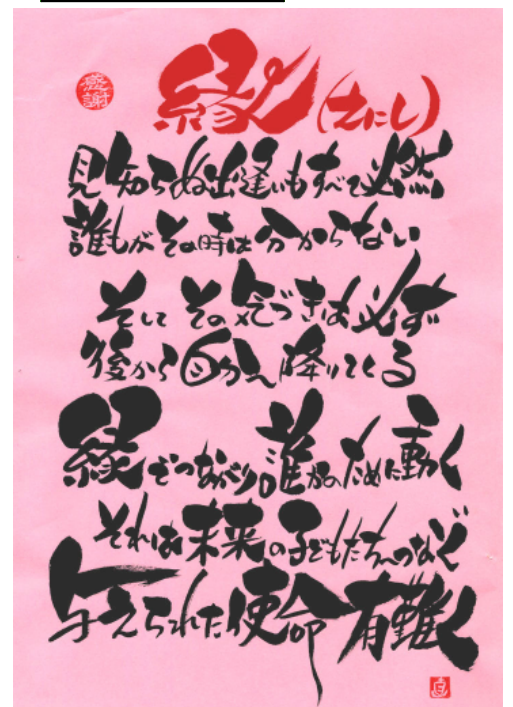 感謝
縁(えにし)
見知らぬ出逢いもすべて必然
誰もがその時は分からない
そして その気づきは必ず
後から自分へ降りてくる
縁でつながり誰かのために動く
それは未来の子どもたちへつなぐ
与えられた使命 有難く